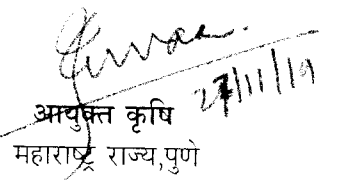 27/11/19
आयुक्त कृषि
महाराष्ट्र राज्य,पुणे